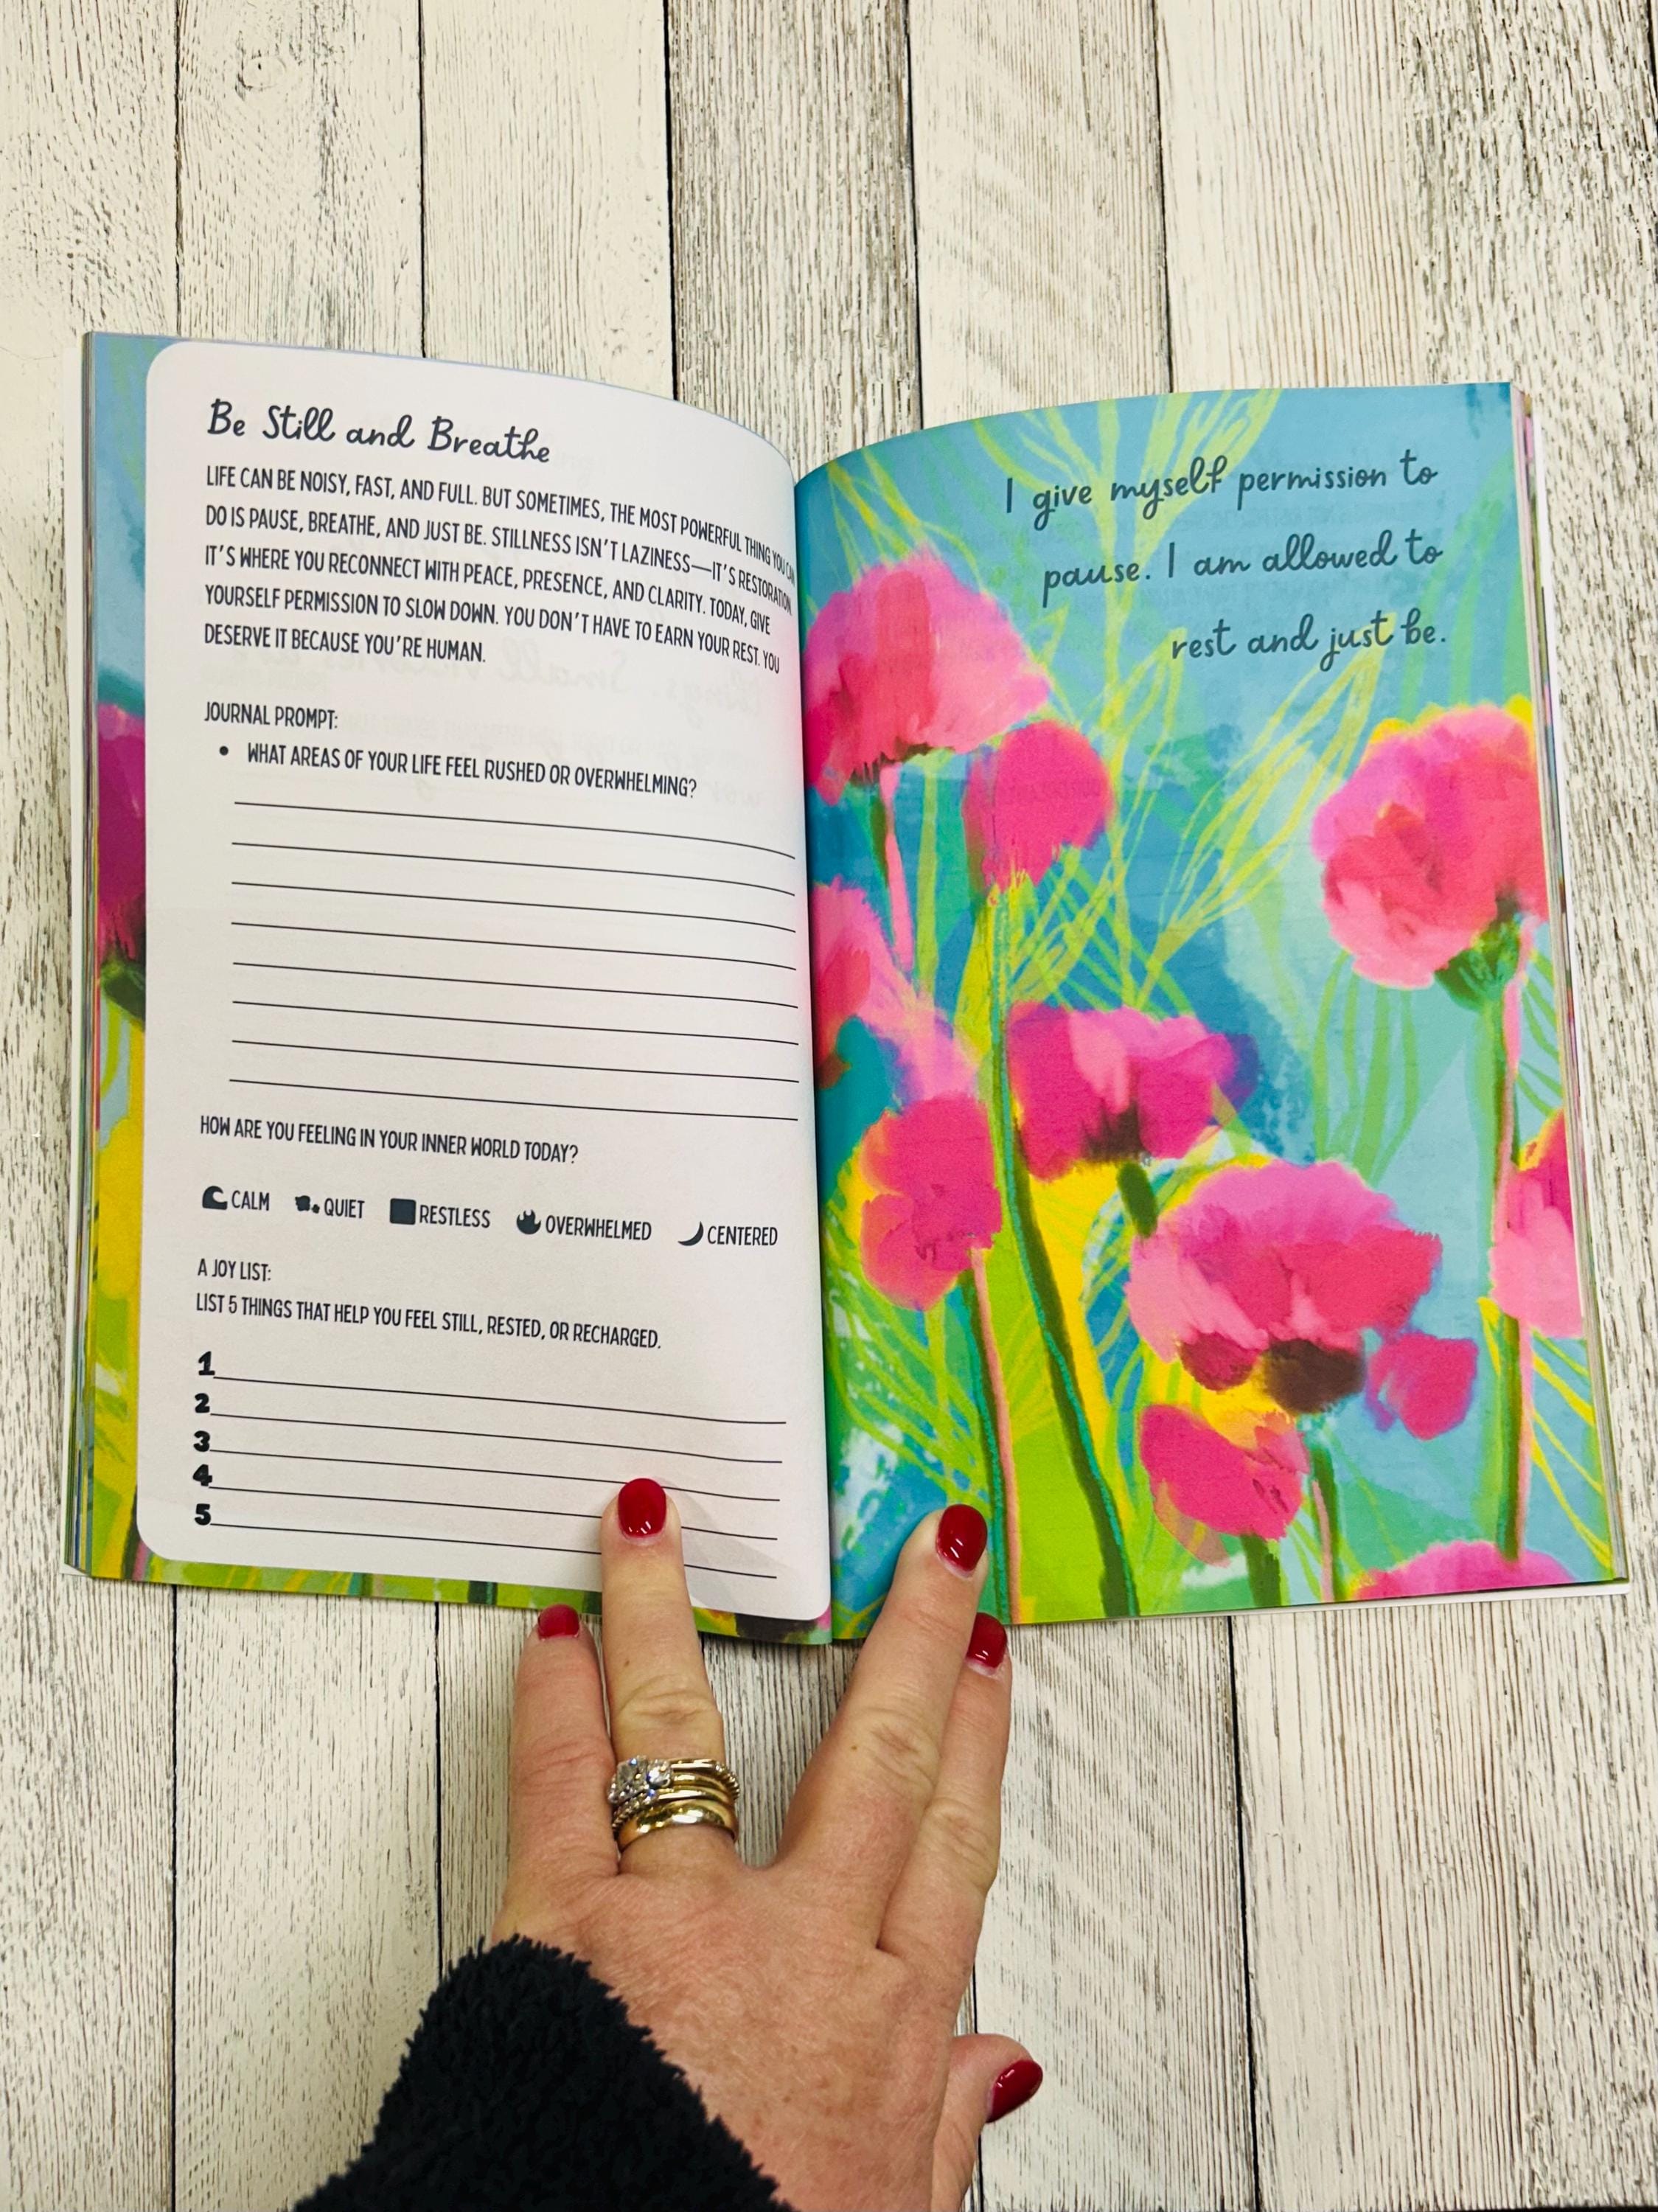 Be Still and Breathe
LIFE CAN BE NOISY, FAST, AND FULL. BUT SOMETIMES, THE MOST POWERFUL THING YOU CAN
DO IS PAUSE, BREATHE, AND JUST BE. STILLNESS ISN'T LAZINESS—IT'S RESTORATION.
IT'S WHERE YOU RECONNECT WITH PEACE, PRESENCE, AND CLARITY. TODAY, GIVE
YOURSELF PERMISSION TO SLOW DOWN. YOU DON'T HAVE TO EARN YOUR REST. YOU
DESERVE IT BECAUSE YOU'RE HUMAN.
JOURNAL PROMPT:
• WHAT AREAS OF YOUR LIFE FEEL RUSHED OR OVERWHELMING?
HOW ARE YOU FEELING IN YOUR INNER WORLD TODAY?
CALM QUIET RESTLESS OVERWHELMED CENTERED
A JOY LIST:
LIST 5 THINGS THAT HELP YOU FEEL STILL, RESTED, OR RECHARGED.
1
2
3
4
5
I give myself permission to
pause. I am allowed to
rest and just be.